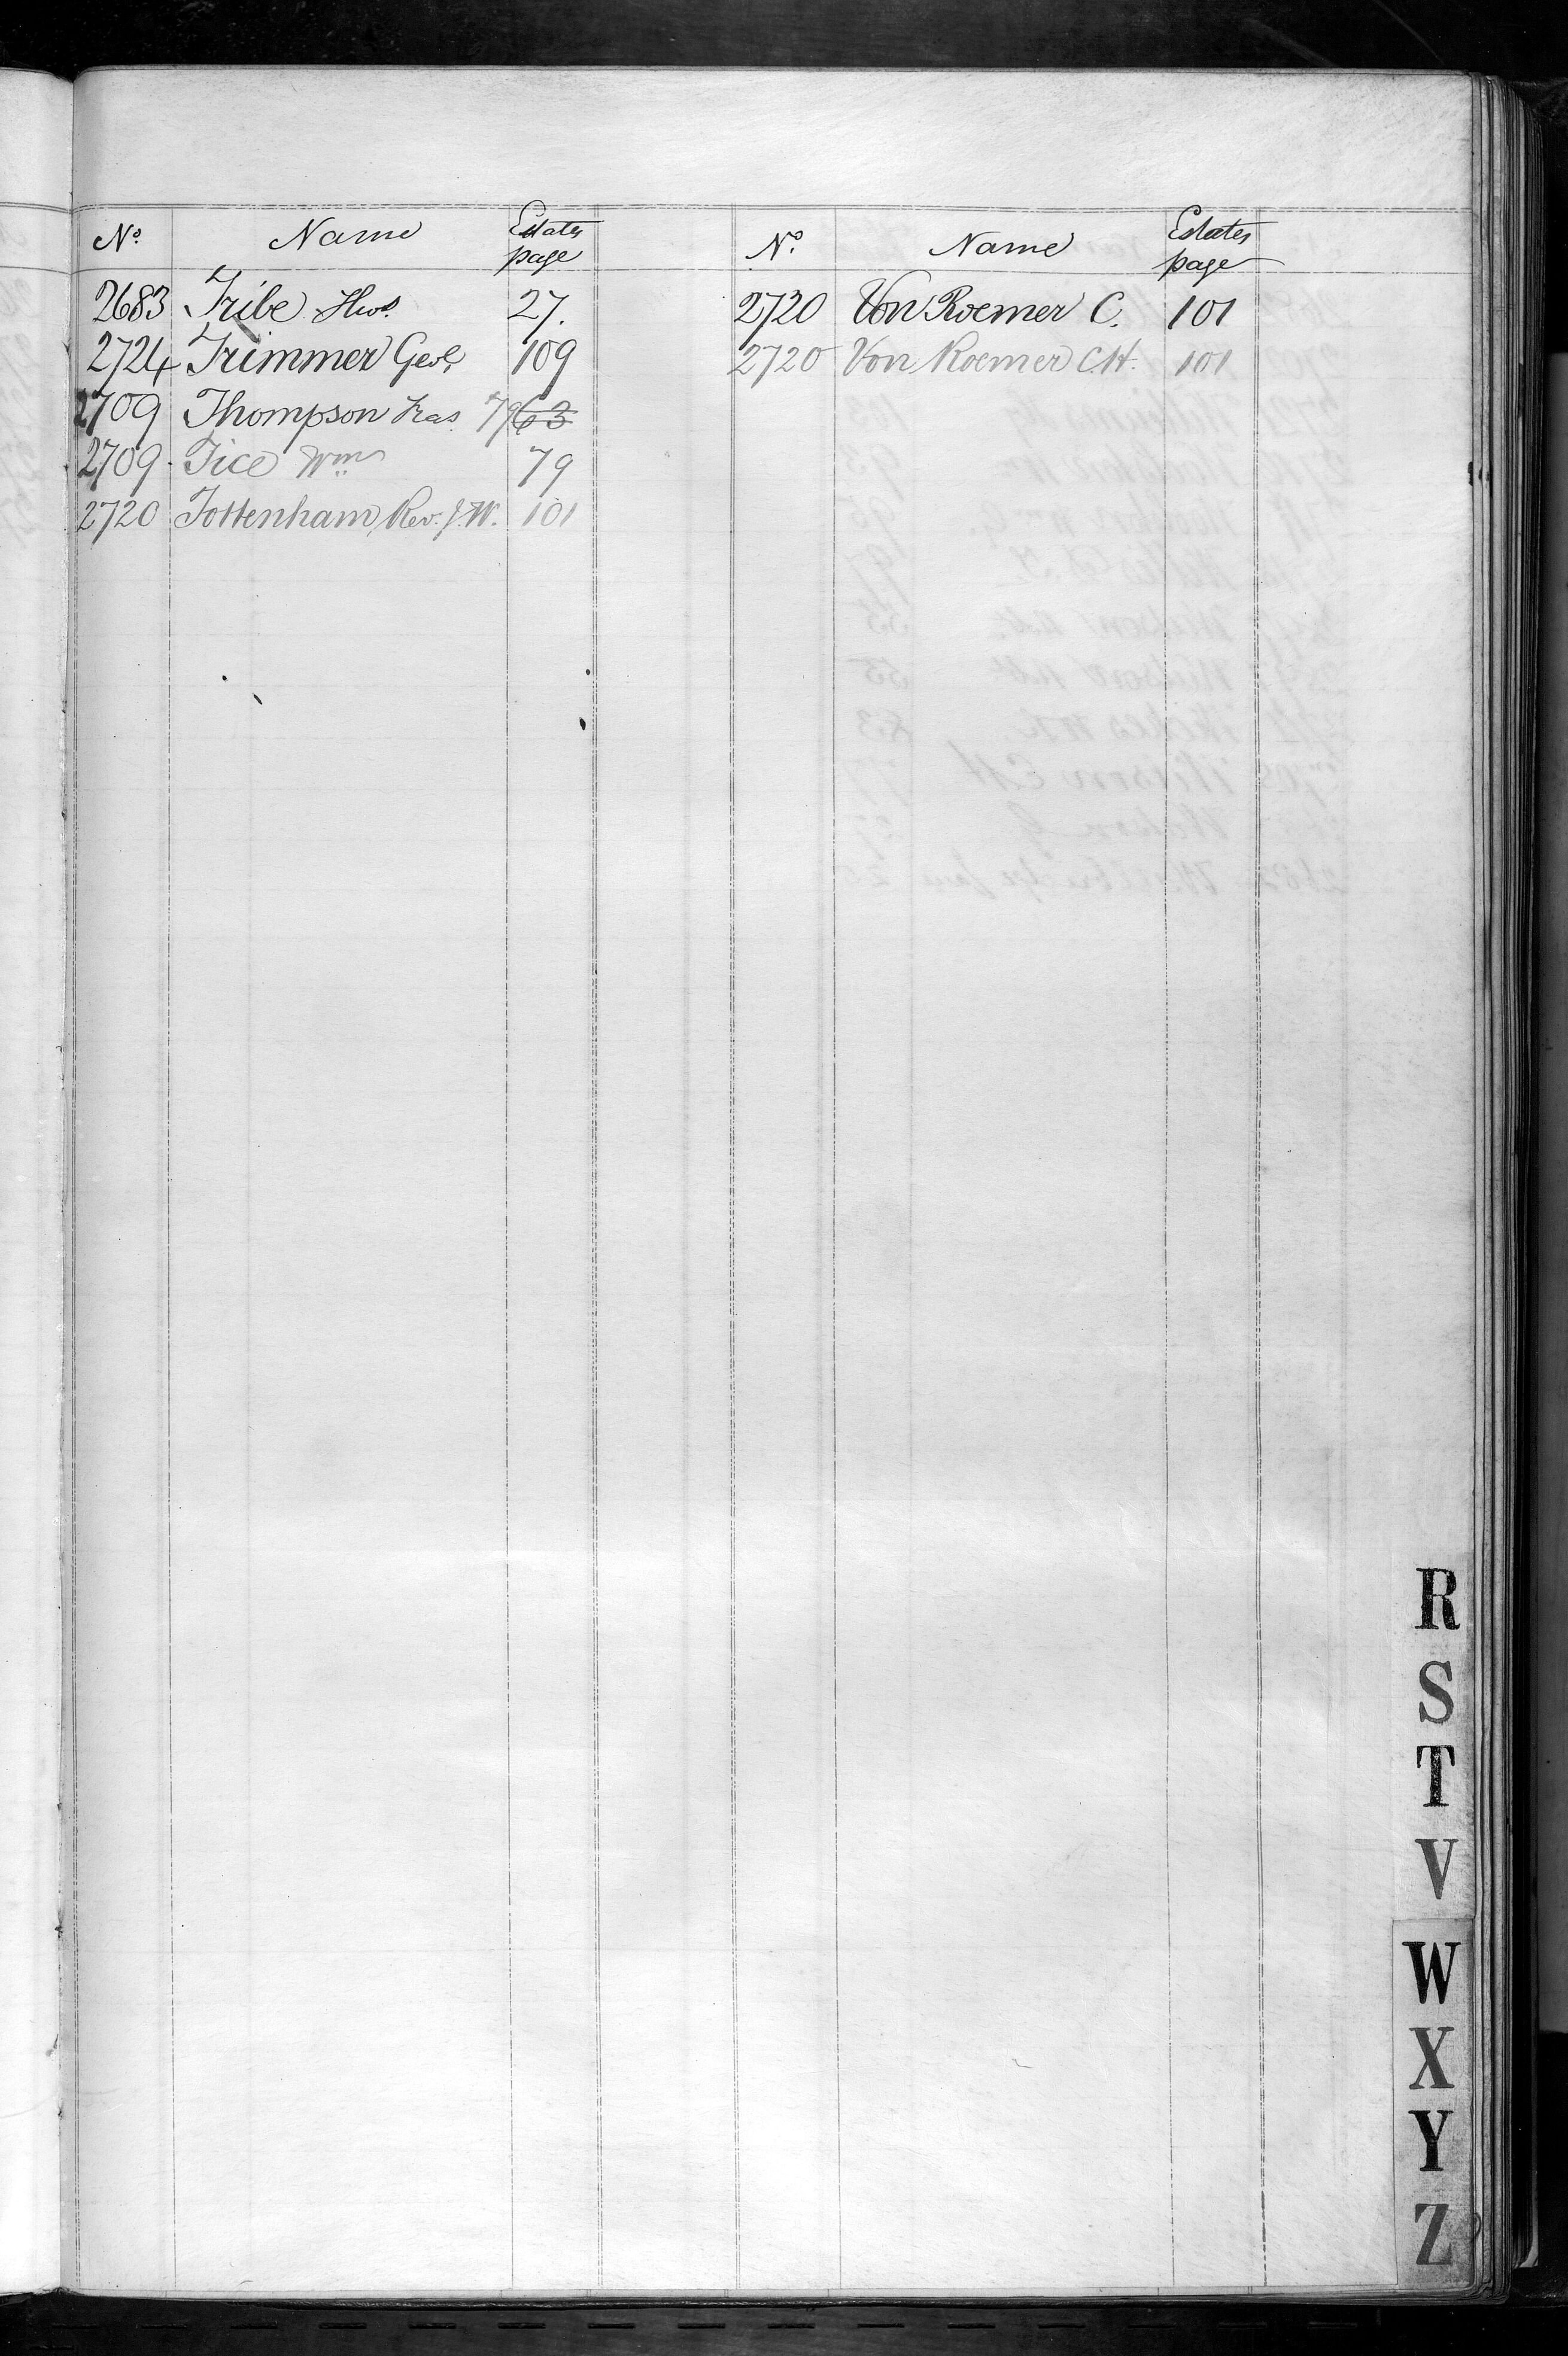 No. Name Estates page
2683 Tribe Thos. 27.
2724 Trimmer Geo. 109
2709 Thompson Fras. 79 63
2709 Tice Wm 79
2720 Tottenham Rev. J.W. 101
No. Name Estates page
2720 Von Roemer C. 101
2720 Von Roemer C.H. 101
R
S
T
V
W
X
Y
Z